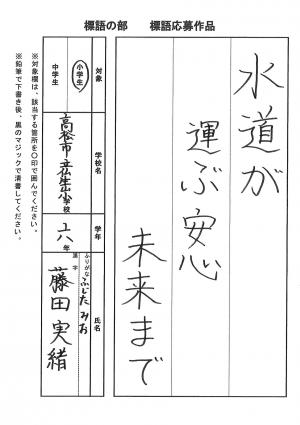 標語の部 標語応募作品
水道が
運ぶ安心
未来まで
対象
小学生
中学生
学校名
高松市立仏生山小学校
学年
六年
ふりがな
漢字
氏名
ふじた みお
藤田 実緒
※対象欄は、該当する箇所を〇印で囲んでください。
※鉛筆で下書き後、黒のマジックで清書してください。